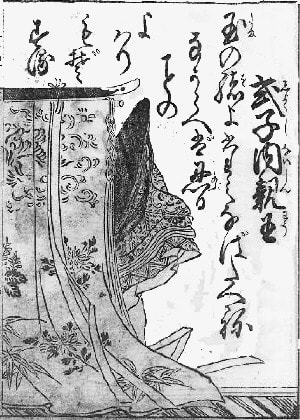 式子内親王
玉の緒よたえなばたえね
ながらへば忍る
ことの
よはり
もぞ
する